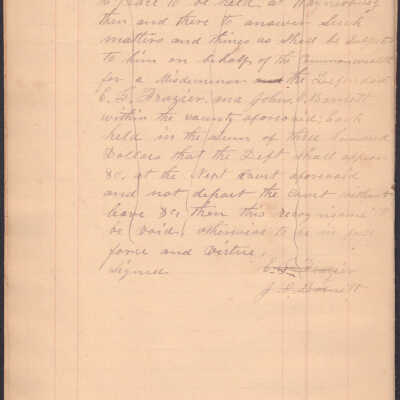 peace to be held at Waynesburg
then and there to answer such
matters and things as shall be
to him on behalf of the Commonwealth
for a Misdemenor and the Defendant
E. L. Frazier and John Barnett
within the county aforesaid, each
held in the sum of three hundred
Dollars that the Deft shall appear
&c, at the Next Court aforesaid
and not depart the Court without
leave &c, then this
be void, otherwise to be in full
force and Virtue,
signed E. L. Frazier
J. Barnett